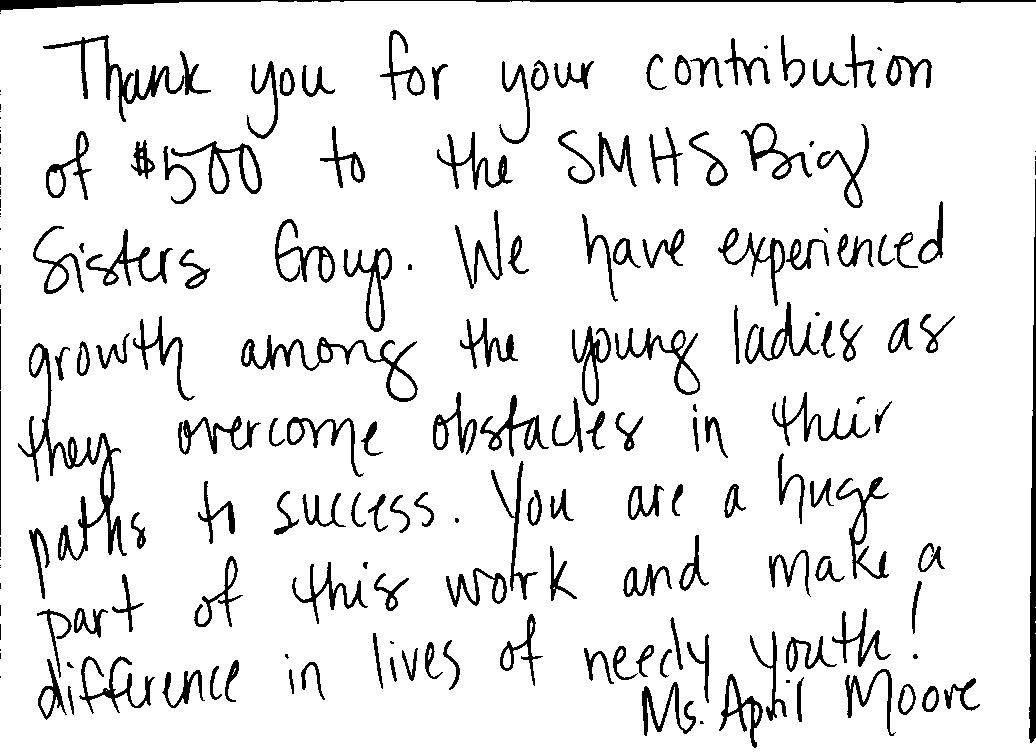 Thank you for your contribution
of $500 to the SMHS Big
Sisters Group. We have experienced
growth among the young ladies as
they overcome obstacles in their
paths to success. You are a huge
part of this work and make a
difference in lives of needy youth!
Ms. April Moore